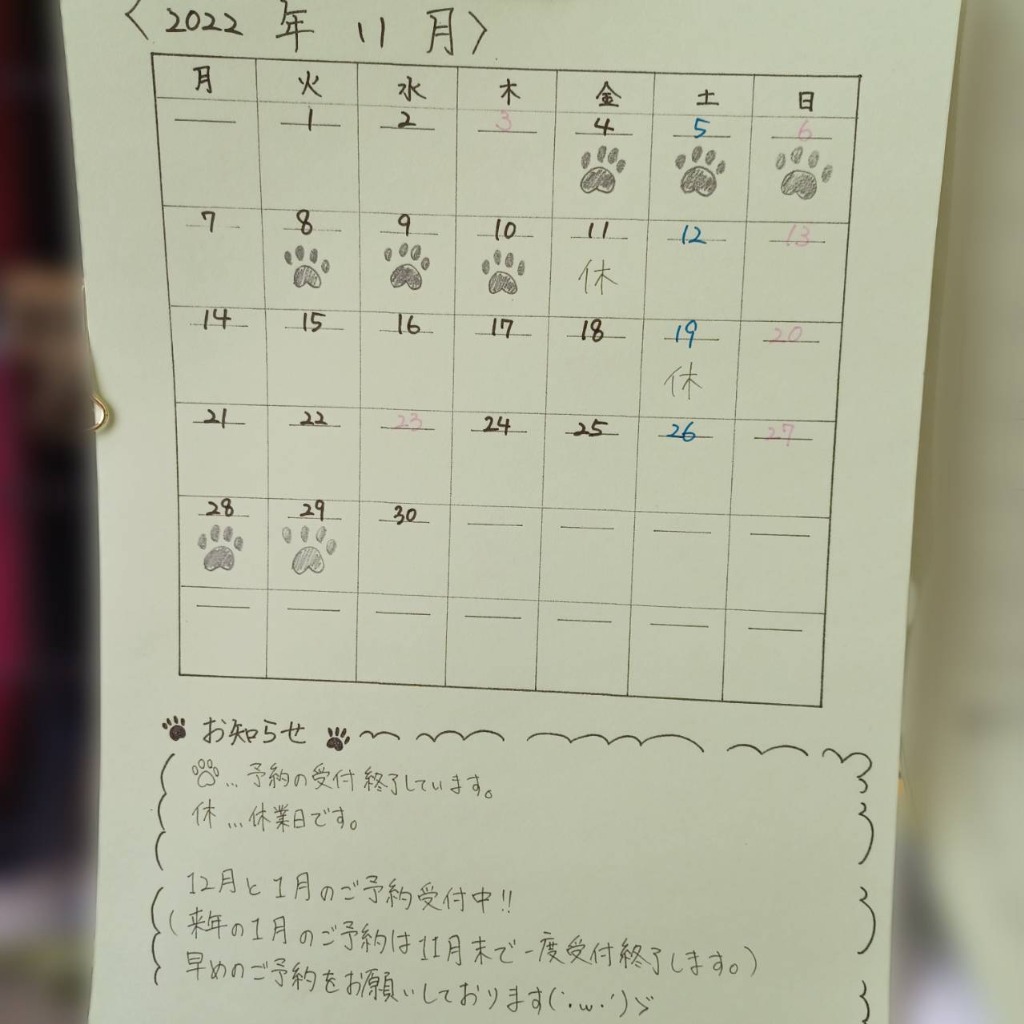 〈2022 年 11 月〉
月 火 水 木 金 土 日
1 2 3 4 5 6
7 8 9 10 11 12 13
休
14 15 16 17 18 19 20
休
21 22 23 24 25 26 27
28 29 30
お知らせ
…予約の受付終了しています。
休…休業日です。
12月と1月のご予約受付中!!
(来年の1月のご予約は11月末で一度受付終了します。)
早めのご予約をお願いしております(´・ω・`)ゞ